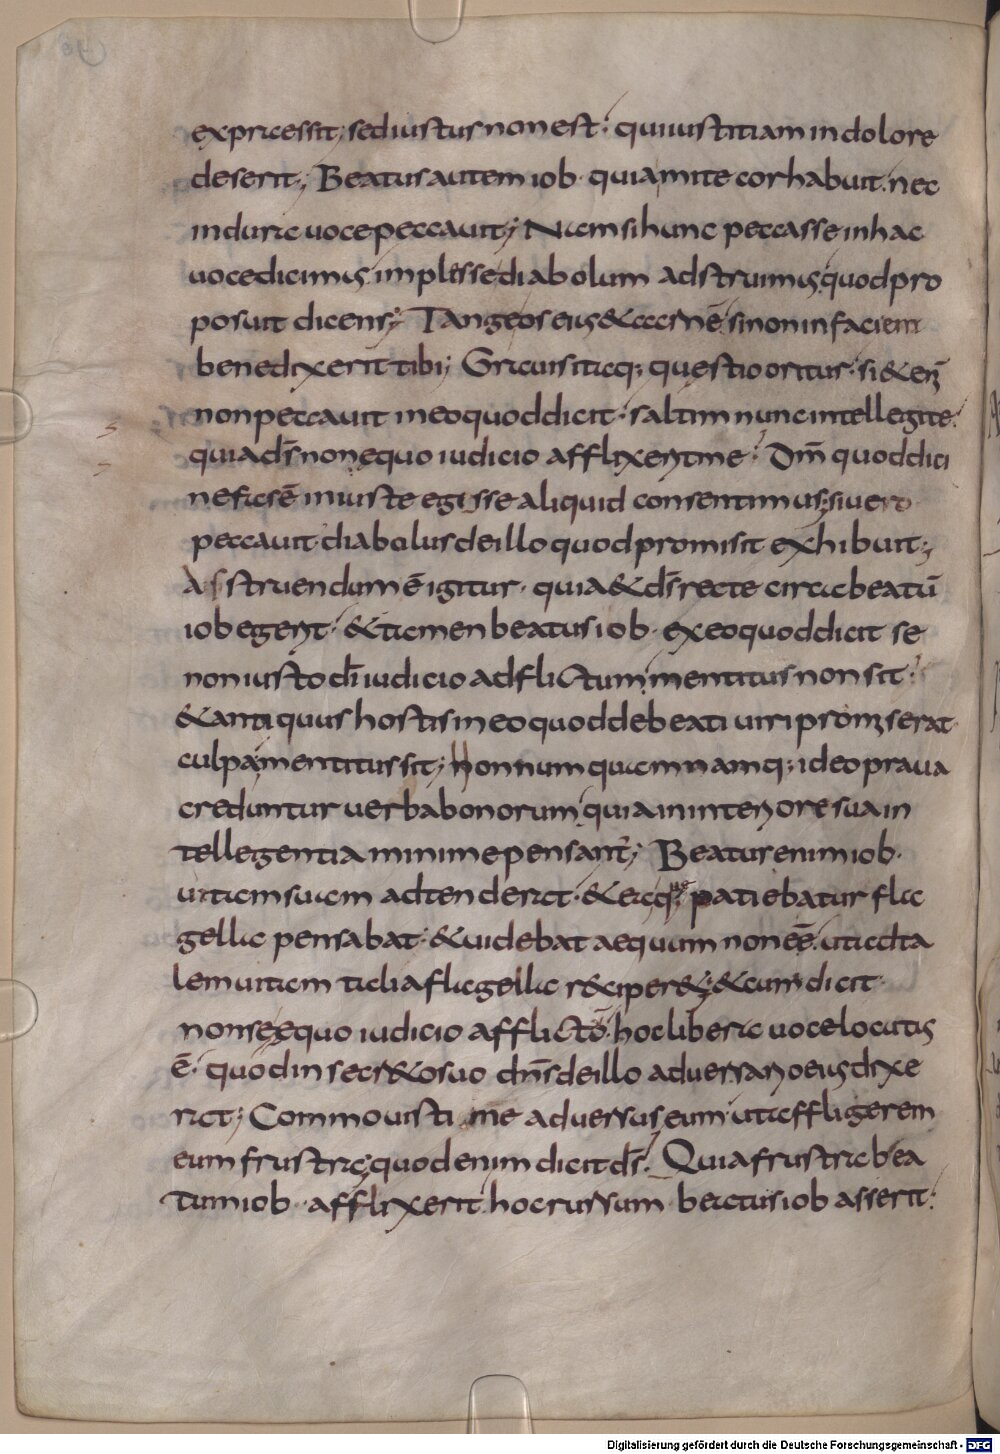 expressit; sed iustus non est. qui iustitiam in dolore
deserit; Beatus autem iob. quia mite cor habuit. nec
in dura uoce peccauit; Nam si hunc peccasse in hac
uoce dicimus implesse diabolum adstruimus quod pro
posuit dicens; Tange os eius & carnē si non in faciem
benedixerit tibi; Grauis itaq; questio oritur. si & eni
non peccauit in eo quod dicit. saltim nunc intellegite.
quia ds non equo iudicio afflixerit me. Dm quod dici
nefas ē iniuste egisse aliquid consentimus; si uero
peccauit diabolus de illo quod promisit exhibuit;
Asstruendum ē igitur. quia & ds recte circa beatū
iob egerit. & tamen beatus iob. ex eo quod dicit se
non iusto di iudicio adflictum mentitus non sit.
& antiquus hostis in eo quod de beati uiri promiserat
culpa mentitus sit; Nonnumquam namq; ideo praua
creduntur uerba bonorum quia in interiore sua in
tellegentia minime pensant; Beatus enim iob.
uitam suam adtenderat. & ea q; patiebatur fla
gella pensabat. & uidebat aequum non eē. ut ad ta
lem uitam talia flagella reciper&; & cum dicit
non se equo iudicio afflictō. hoc libera uoce locutus
ē. quod in secr&o suo dns de illo aduersario eius dixe
rat; Commouisti me aduersus eum ut affligerem
eum frustra; quod enim dicit ds. Quia frustra bea
tum iob. afflixerit hoc rursum beatus iob asserit.
Digitalisierung gefördert durch die Deutsche Forschungsgemeinschaft - DFG